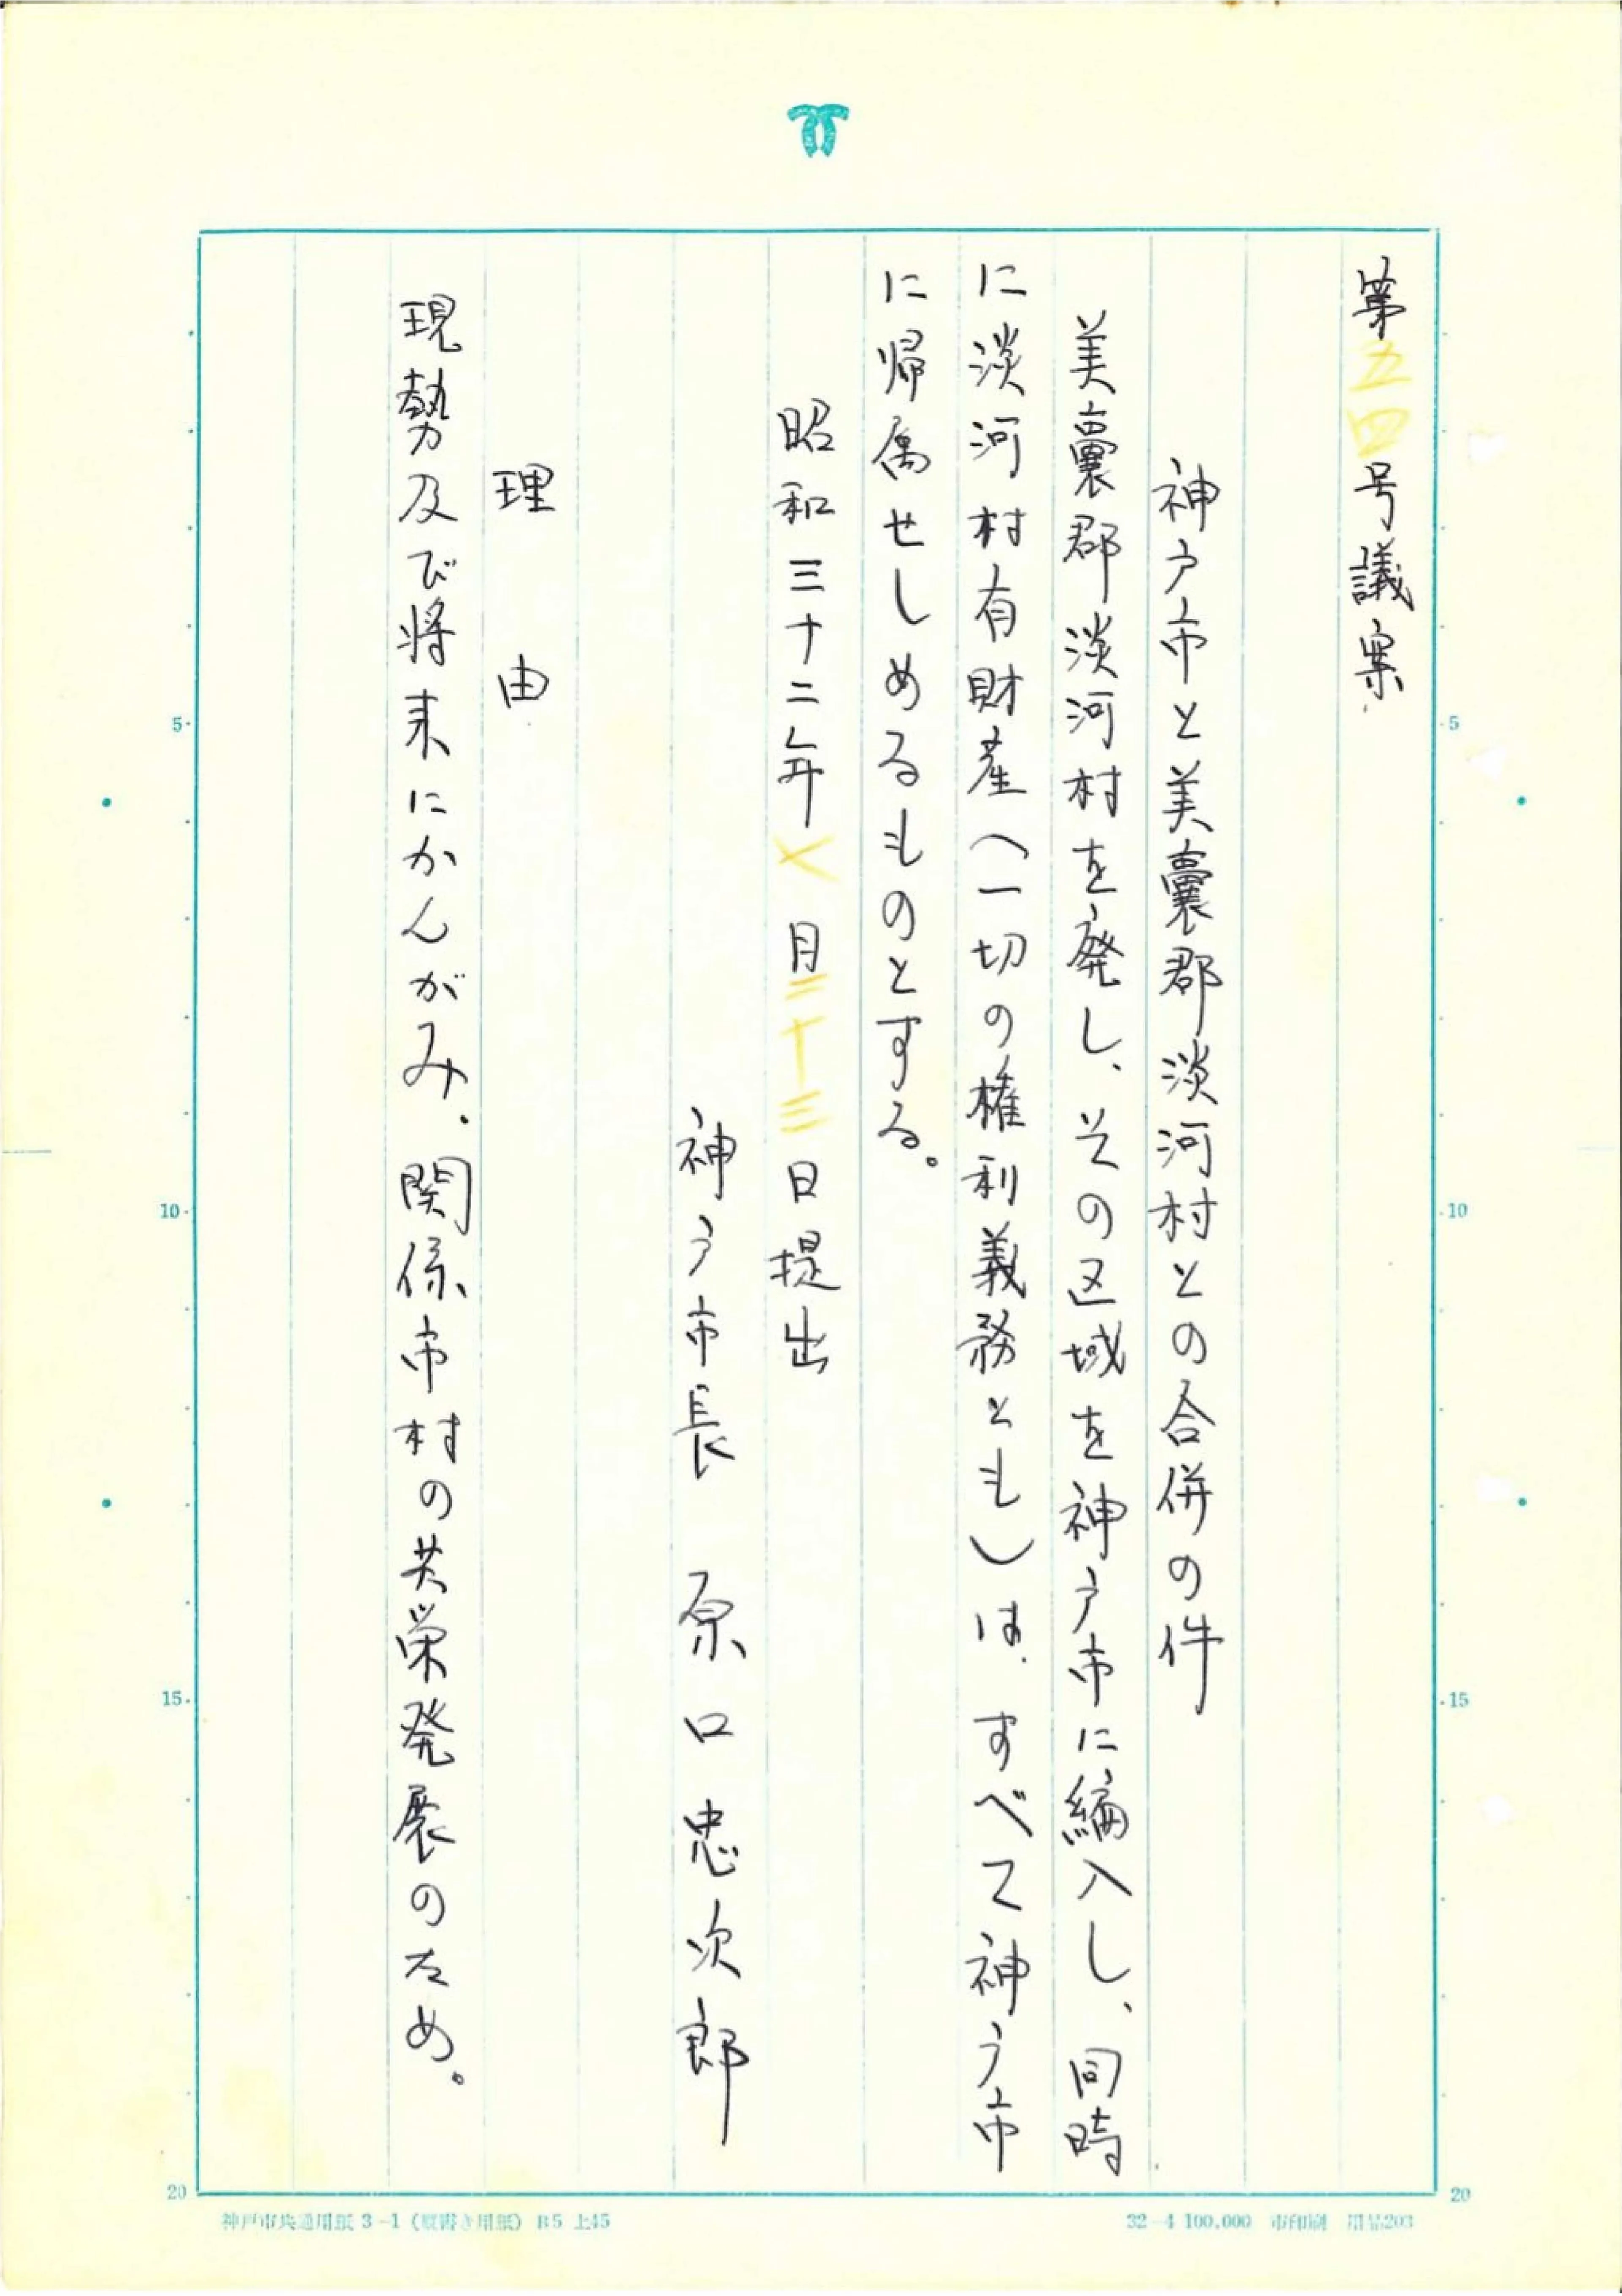 第五四号議案
神戸市と美嚢郡淡河村との合併の件
美嚢郡淡河村を廃し、その区域を神戸市に編入し、同時
に淡河村有財産(一切の権利義務とも)は、すべて神戸市
に帰属せしめるものとする。
昭和三十二年七月二十三日提出
神戸市長 原口忠次郎
理由
現勢及び将来にかんがみ、関係市村の共栄発展のため。
5
10
15
20
5
10
15
20
神戸市共通用紙 3-1(縦書き用紙) B5 上45
32-4 100,000 市印刷 用品203